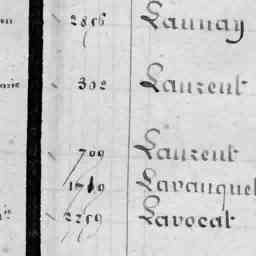 2856 Launay
302 Laurent
709 Laurent
Lavanquel
2259 Lavocat